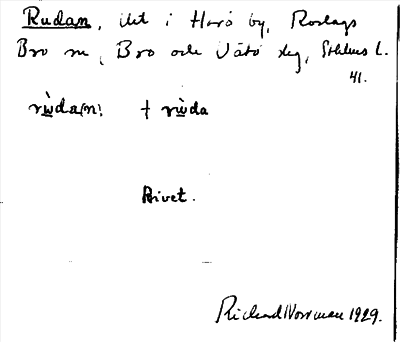 Rudan, skt i Harö by, Roslags
Bro sn, Bro och Vätö skg, Sthlms l.
41.
rùda(n) † rùda
Privet.
Richard Norrman 1929.